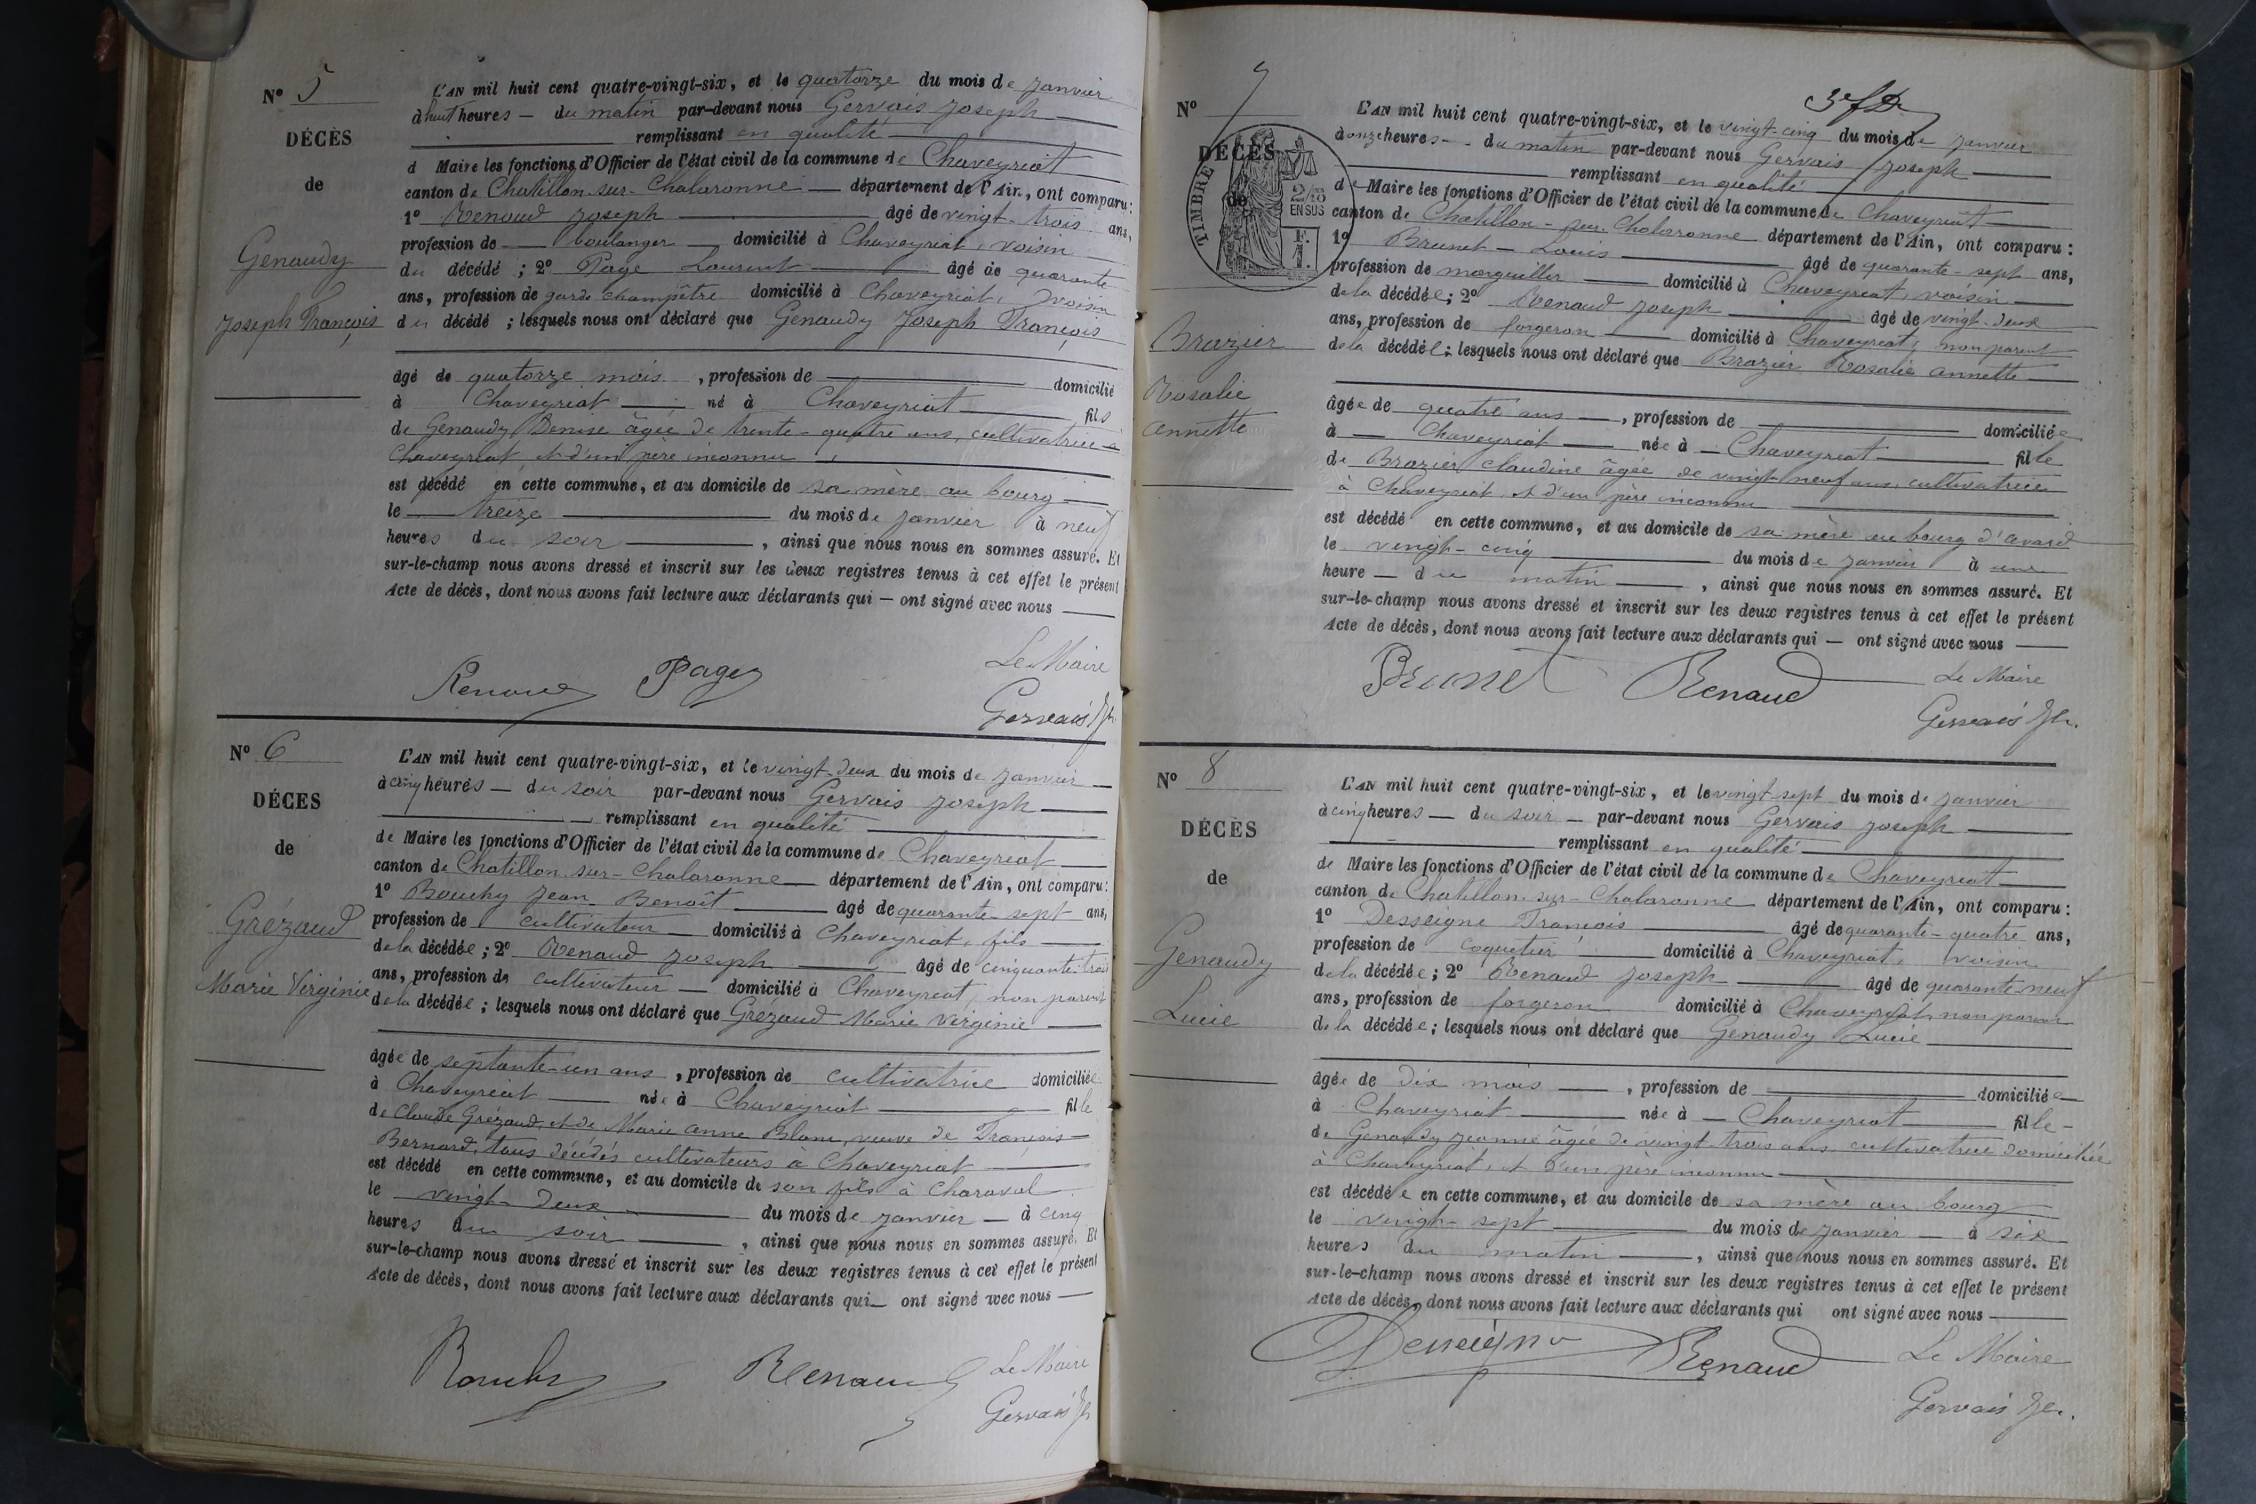 N° 5
DÉCÈS
de
Genaudy
Joseph François
L'AN mil huit cent quatre-vingt-six, et le quatorze du mois de janvier
à huit heures - du matin par-devant nous Gervais Joseph
remplissant en qualité
d Maire les fonctions d'Officier de l'état civil de la commune de Chaveyriat
canton de Chatillon-sur-Chalaronne département de l'Ain, ont comparu :
1° Renaud Joseph âgé de vingt-trois ans,
profession de boulanger domicilié à Chaveyriat, voisin
du décédé ; 2° Page Laurent âgé de quarante
ans, profession de garde champêtre domicilié à Chaveyriat, voisin
du décédé ; lesquels nous ont déclaré que Genaudy Joseph François
âgé de quatorze mois, profession de domicilié
à Chaveyriat né à Chaveyriat fils
de Genaudy Denise âgée de trente-quatre ans, cultivatrice à
Chaveyriat et d'un père inconnu
est décédé en cette commune, et au domicile de sa mère au bourg
le treize du mois de janvier à neuf
heures du soir, ainsi que nous nous en sommes assuré. Et
sur-le-champ nous avons dressé et inscrit sur les deux registres tenus à cet effet le présent
Acte de décès, dont nous avons fait lecture aux déclarants qui — ont signé avec nous
Le Maire
Renaud Page
Gervais Jh
N° 6
DÉCES
de
Grézaud
Marie Virginie
L'AN mil huit cent quatre-vingt-six, et le vingt-deux du mois de janvier
à cinq heures — du soir par-devant nous Gervais Joseph
remplissant en qualité
de Maire les fonctions d'Officier de l'état civil de la commune de Chaveyriat
canton de Chatillon-sur-Chalaronne département de l'Ain, ont comparu :
1° Bouchy Jean Benoît âgé de quarante-sept ans,
profession de cultivateur domicilié à Chaveyriat, fils
de la décédée ; 2° Renaud Joseph âgé de cinquante-trois
ans, profession de cultivateur domicilié à Chaveyriat, non parent
de la décédée ; lesquels nous ont déclaré que Grézaud Marie Virginie
âgée de septante-un ans, profession de cultivatrice domiciliée
à Chaveyriat née à Chaveyriat fille
de Claude Grézaud et de Marie Anne Blanc, veuve de François
Bernard, tous décédés cultivateurs à Chaveyriat
est décédé en cette commune, et au domicile de son fils à Charaval
le vingt-deux du mois de janvier — à cinq
heures du soir, ainsi que nous nous en sommes assuré. Et
sur-le-champ nous avons dressé et inscrit sur les deux registres tenus à cet effet le présent
Acte de décès, dont nous avons fait lecture aux déclarants qui — ont signé avec nous
Renaud Le Maire
Gervais Jh
N° 7
TIMBRE
2/10
EN SUS
F.
1.
DÉCÈS
de
Brazier
Rosalie
Annette
L'AN mil huit cent quatre-vingt-six, et le vingt-cinq du mois de janvier
à onze heures - du matin par-devant nous Gervais Joseph
remplissant en qualité
de Maire les fonctions d'Officier de l'état civil de la commune de Chaveyriat
canton de Chatillon-sur-Chalaronne département de l'Ain, ont comparu :
1° Brunet Louis âgé de quarante-sept ans,
profession de marguiller domicilié à Chaveyriat, voisin
de la décédée ; 2° Renaud Joseph âgé de vingt-deux
ans, profession de forgeron domicilié à Chaveyriat, non parent
de la décédée ; lesquels nous ont déclaré que Brazier Rosalie Annette
âgée de quatre ans, profession de domiciliée
à Chaveyriat née à Chaveyriat fille
de Brazier Claudine âgée de vingt-neuf ans, cultivatrice
à Chaveyriat et d'un père inconnu
est décédé en cette commune, et au domicile de sa mère au bourg d'avard
le vingt-cinq du mois de janvier à une
heure — du matin, ainsi que nous nous en sommes assuré. Et
sur-le-champ nous avons dressé et inscrit sur les deux registres tenus à cet effet le présent
Acte de décès, dont nous avons fait lecture aux déclarants qui — ont signé avec nous
Brunet Renaud Le Maire
Gervais Jh.
N° 8
DÉCÈS
de
Genaudy
Lucie
L'AN mil huit cent quatre-vingt-six, et le vingt-sept du mois de janvier
à cinq heures — du soir — par-devant nous Gervais Joseph
remplissant en qualité
de Maire les fonctions d'Officier de l'état civil de la commune de Chaveyriat
canton de Chatillon-sur-Chalaronne département de l'Ain, ont comparu :
1° Desseigne François âgé de quarante-quatre ans,
profession de coquetier domicilié à Chaveyriat, voisin
de la décédée ; 2° Renaud Joseph âgé de quarante-neuf
ans, profession de forgeron domicilié à Chaveyriat, non parent
de la décédée ; lesquels nous ont déclaré que Genaudy Lucie
âgée de dix mois, profession de domiciliée
à Chaveyriat née à Chaveyriat fille
de Genaudy Jeanne âgée de vingt-trois ans cultivatrice domiciliée
à Chaveyriat, et d'un père inconnu
est décédée en cette commune, et au domicile de sa mère au bourg
le vingt-sept du mois de janvier — à six
heures du matin, ainsi que nous nous en sommes assuré. Et
sur-le-champ nous avons dressé et inscrit sur les deux registres tenus à cet effet le présent
Acte de décès, dont nous avons fait lecture aux déclarants qui ont signé avec nous
Desseigne Renaud Le Maire
Gervais Jh.